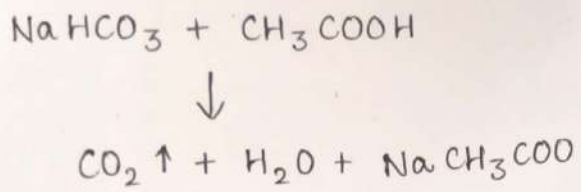 NaHCO₃ + CH₃COOH
↓
CO₂ ↑ + H₂O + NaCH₃COO